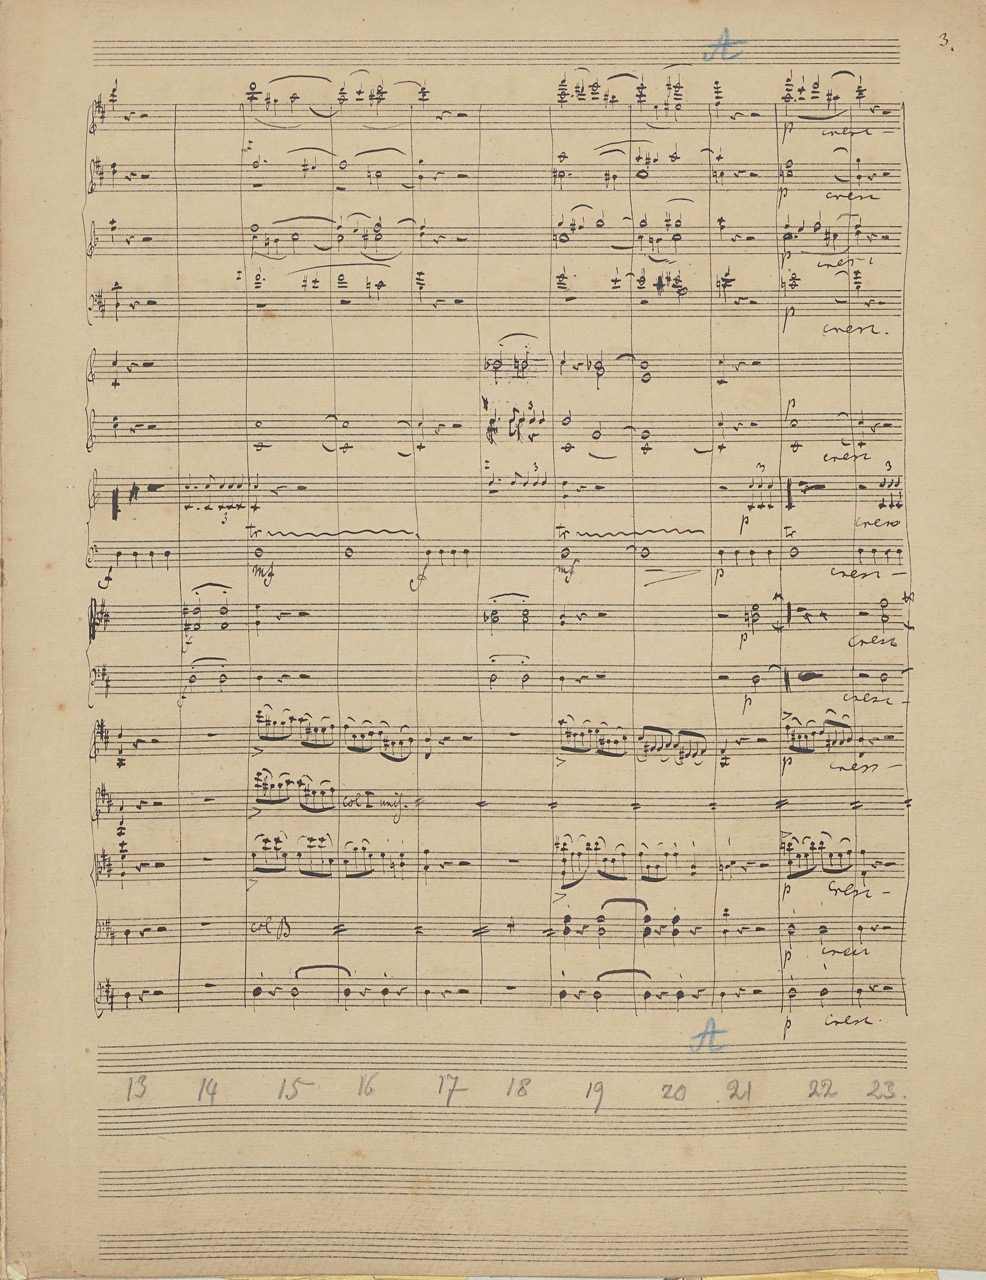 3.
A
p cresc -
p cresc
p cresc
p cresc.
3
p
cresc
3 3 3 3
p cresc
tr tr tr
f mf f mf p cresc -
f p cresc
f p cresc -
> > > p cresc -
> col I unis.
> > > p cresc -
col B p cresc
p cresc.
A
13 14 15 16 17 18 19 20 21 22 23.